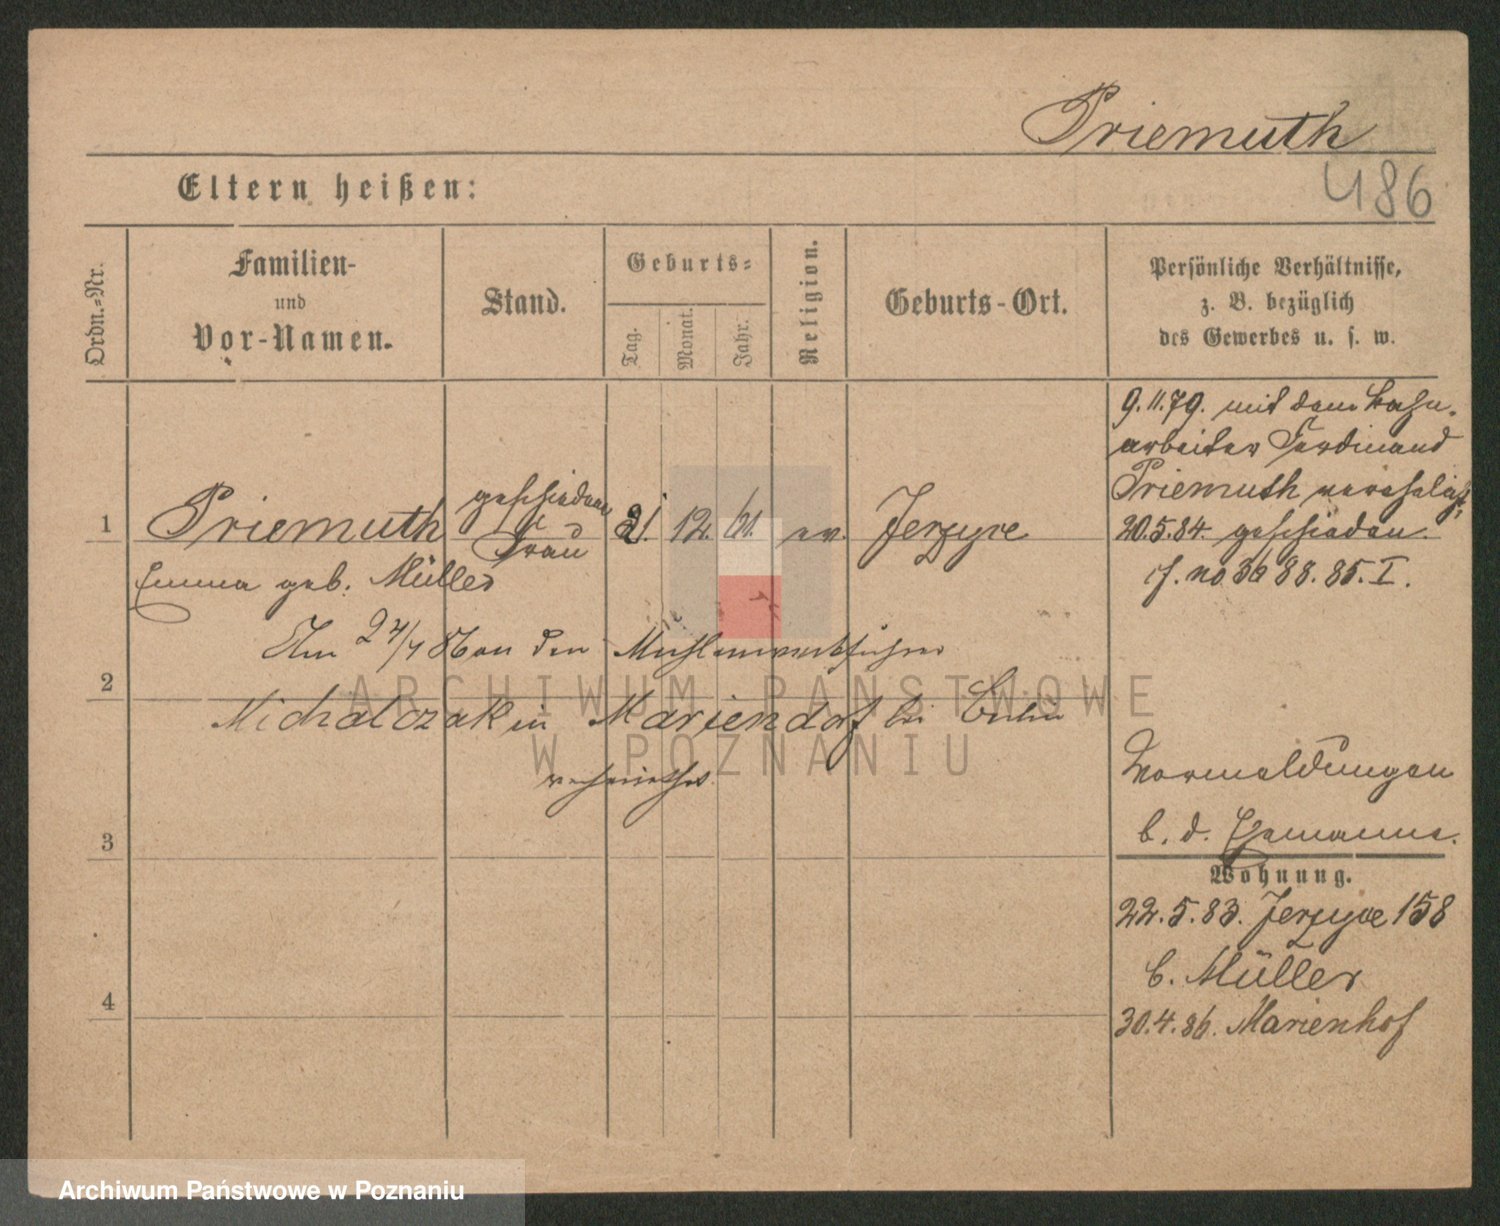 Priemuth
486
Eltern heißen:
Ordn.-Nr.
Familien-
und
Vor-Namen.
Stand.
Geburts-
Tag.
Monat.
Jahr.
Religion.
Geburts-Ort.
Persönliche Verhältnisse,
z. B. bezüglich
des Gewerbes u. s. w.
1
Priemuth
Emma geb. Müller
geschiedene
Frau
21. 12. 61.
ev.
Jerzyce
9.11.79. mit dem Bahn-
arbeiter Ferdinand
Priemuth verehelicht,
20.5.84. geschieden.
cf. no 36 88. 85. I.
Am 24/7 86 an den Mühlenwerkführer
2
Michalczak in Mariendorf bei
verheirathet.
Vormeldungen
b. d. Ehemanne.
3
Wohnung.
22.5.83. Jerzyce 158
b. Müller
30.4.86. Marienhof
4
ARCHIWUM PAŃSTWOWE
W POZNANIU
Archiwum Państwowe w Poznaniu